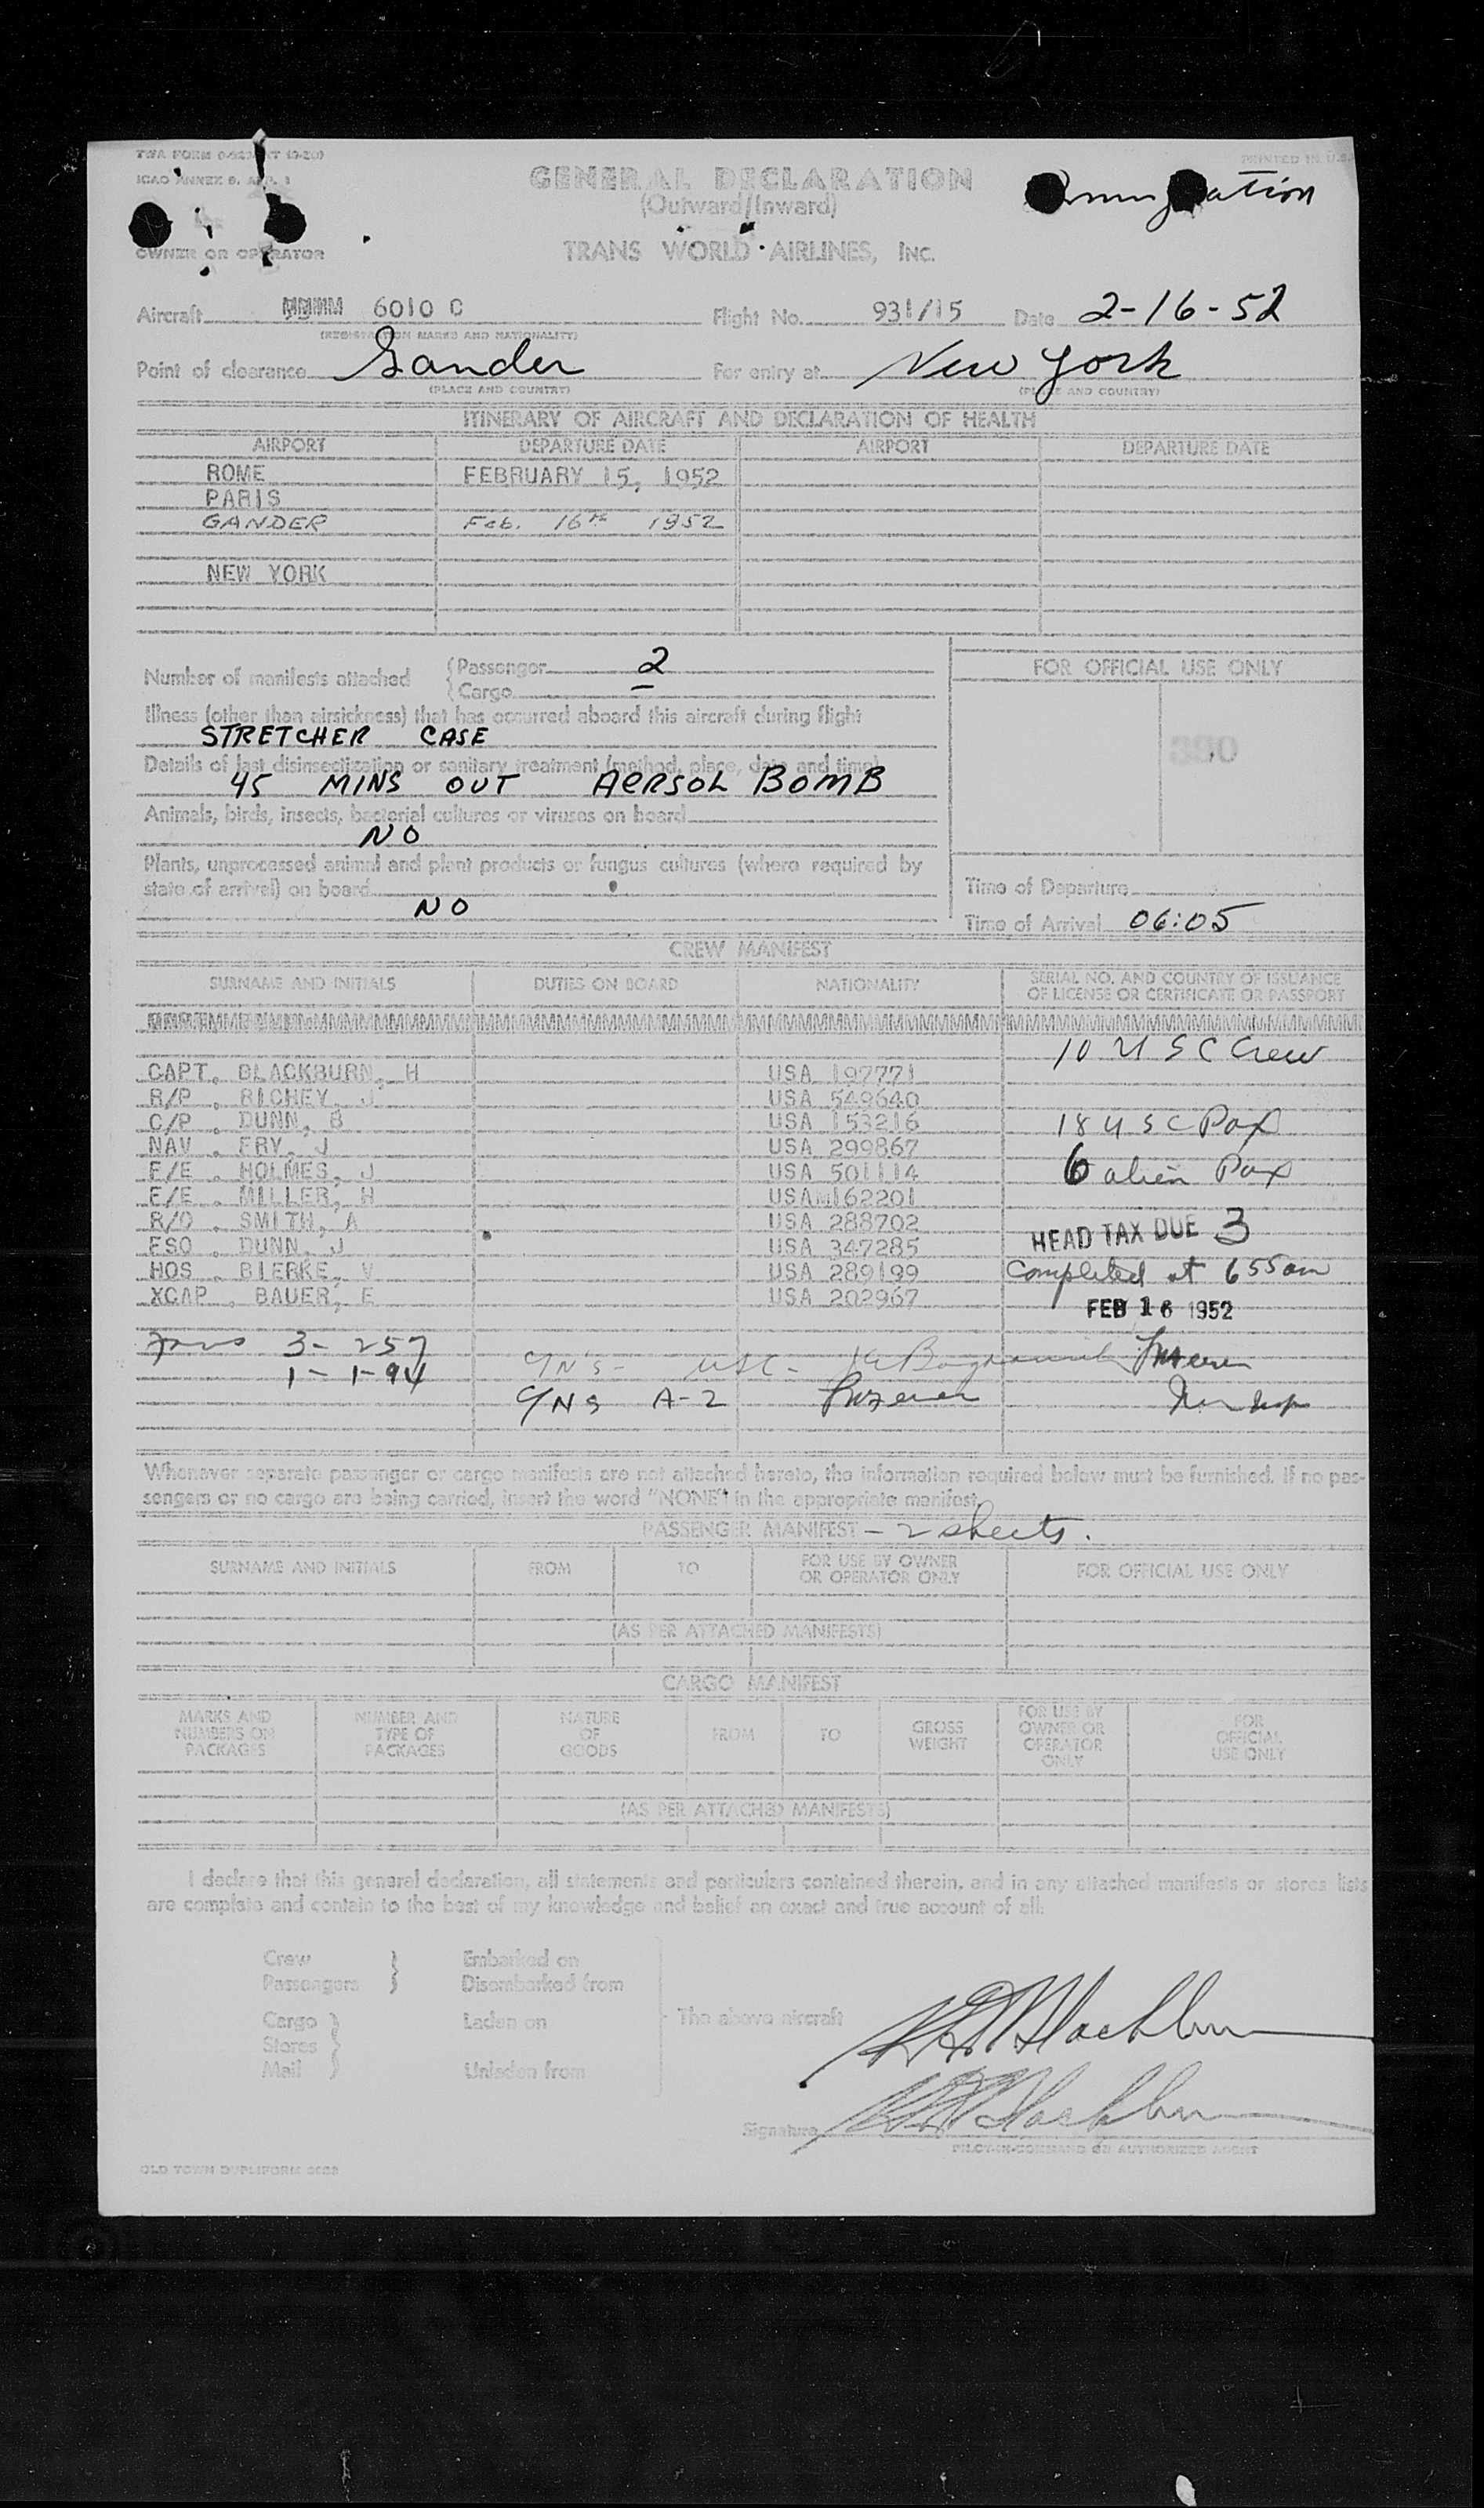 TWA FORM
ICAO ANNEX 9, APP. 1
PRINTED IN U.S.
GENERAL DECLARATION
(Outward/Inward)
OWNER OR OPERATOR
TRANS WORLD AIRLINES, INC.
Aircraft 6010 C Flight No. 931/15 Date 2-16-52
(REGISTRATION MARKS AND NATIONALITY)
Point of clearance Gander For entry at New York
(PLACE AND COUNTRY) (PLACE AND COUNTRY)
ITINERARY OF AIRCRAFT AND DECLARATION OF HEALTH
AIRPORT DEPARTURE DATE AIRPORT DEPARTURE DATE
ROME FEBRUARY 15, 1952
PARIS
GANDER Feb. 16th 1952
NEW YORK
Number of manifests attached { Passenger 2
{ Cargo —
FOR OFFICIAL USE ONLY
Illness (other than airsickness) that has occurred aboard this aircraft during flight
STRETCHER CASE
390
Details of last disinsectization or sanitary treatment (method, place, date and time)
45 MINS OUT AERSOL BOMB
Animals, birds, insects, bacterial cultures or viruses on board
NO
Plants, unprocessed animal and plant products or fungus cultures (where required by
state of arrival) on board
NO
Time of Departure
Time of Arrival 06:05
CREW MANIFEST
SURNAME AND INITIALS DUTIES ON BOARD NATIONALITY SERIAL NO. AND COUNTRY OF ISSUANCE
OF LICENSE OR CERTIFICATE OR PASSPORT
10 U S C Crew
CAPT. BLACKBURN, H USA 197771
R/P . RICHEY, J USA 549640
C/P . DUNN, B USA 153216 18 U S C Pax
NAV . FRY, J USA 299867
F/E . HOLMES, J USA 501114 6 alien Pax
F/E . MILLER, H USA 162201
R/O . SMITH, A USA 288702
HEAD TAX DUE 3
FSO . DUNN, J USA 347285
HOS . BIERKE, V USA 289199 Completed at 655am
XCAP . BAUER, E USA 202967
FEB 16 1952
3 - 257
1 - 1-94
USC -
A-2
Whenever separate passenger or cargo manifests are not attached hereto, the information required below must be furnished. If no pas-
sengers or no cargo are being carried, insert the word "NONE" in the appropriate manifest.
PASSENGER MANIFEST - 2 sheets.
SURNAME AND INITIALS FROM TO FOR USE BY OWNER
OR OPERATOR ONLY FOR OFFICIAL USE ONLY
(AS PER ATTACHED MANIFESTS)
CARGO MANIFEST
MARKS AND
NUMBERS ON
PACKAGES NUMBER AND
TYPE OF
PACKAGES NATURE
OF
GOODS FROM TO GROSS
WEIGHT FOR USE BY
OWNER OR
OPERATOR
ONLY FOR
OFFICIAL
USE ONLY
(AS PER ATTACHED MANIFESTS)
I declare that this general declaration, all statements and particulars contained therein, and in any attached manifests or stores lists
are complete and contain to the best of my knowledge and belief an exact and true account of all:
Crew } Embarked on
Passengers } Disembarked from
Cargo } Laden on The above aircraft
Stores
Mail } Unladen from
Signature
PILOT-IN-COMMAND OR AUTHORIZED AGENT
OLD TOWN DUPLIFORM